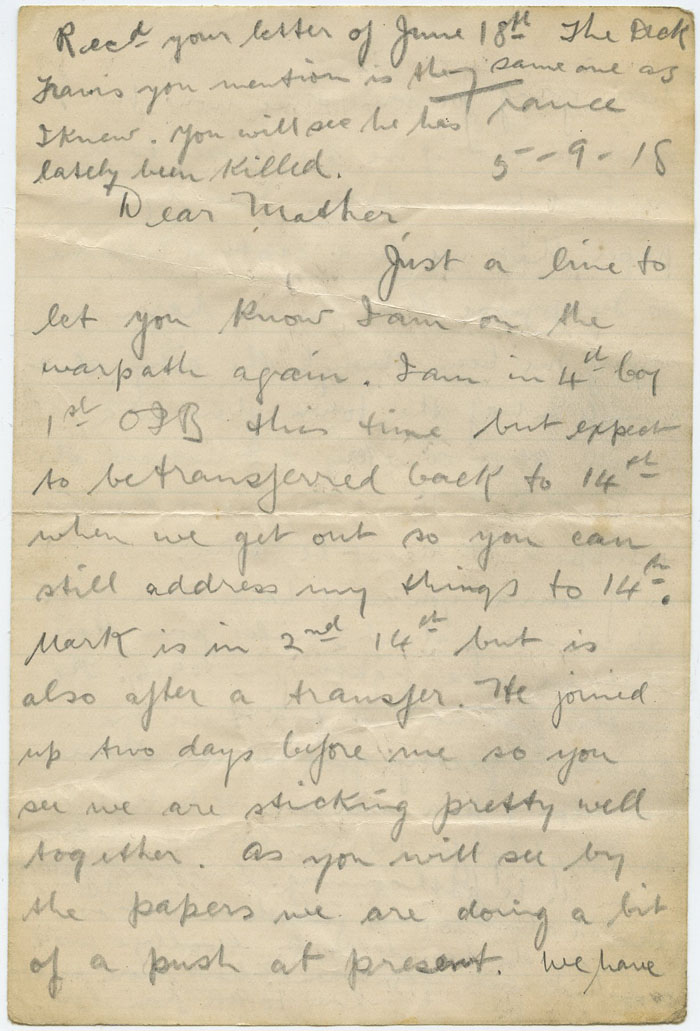 Recd your letter of June 18th The Dick
Travis you mention is the same one as
I knew. You will see he has
lately been killed.
France
5-9-18
Dear Mother
Just a line to
let you know I am on the
warpath again. I am in 4th Coy
1st OIB this time but expect
to be transferred back to 14th
when we get out so you can
still address my things to 14th.
Mark is in 2nd 14th but is
also after a transfer. He joined
up two days before me so you
see we are sticking pretty well
together. As you will see by
the papers we are doing a bit
of a push at present. We have